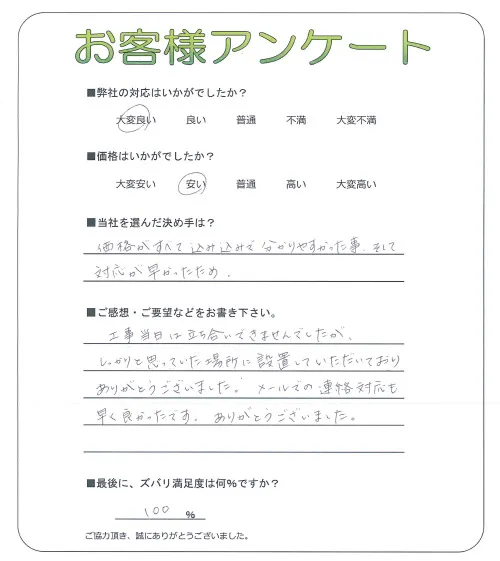 お客様アンケート
■弊社の対応はいかがでしたか？
大変良い 良い 普通 不満 大変不満
■価格はいかがでしたか？
大変安い 安い 普通 高い 大変高い
■当社を選んだ決め手は？
価格がすべて込み込みで分かりやすかった事、そして
対応が早かったため。
■ご感想・ご要望などをお書き下さい。
工事当日は立ち合いできませんでしたが、
しっかりと思っていた場所に設置していただいており
ありがとうございました。メールでの連絡対応も
早く良かったです。ありがとうございました。
■最後に、ズバリ満足度は何%ですか？
100 %
ご協力頂き、誠にありがとうございました。